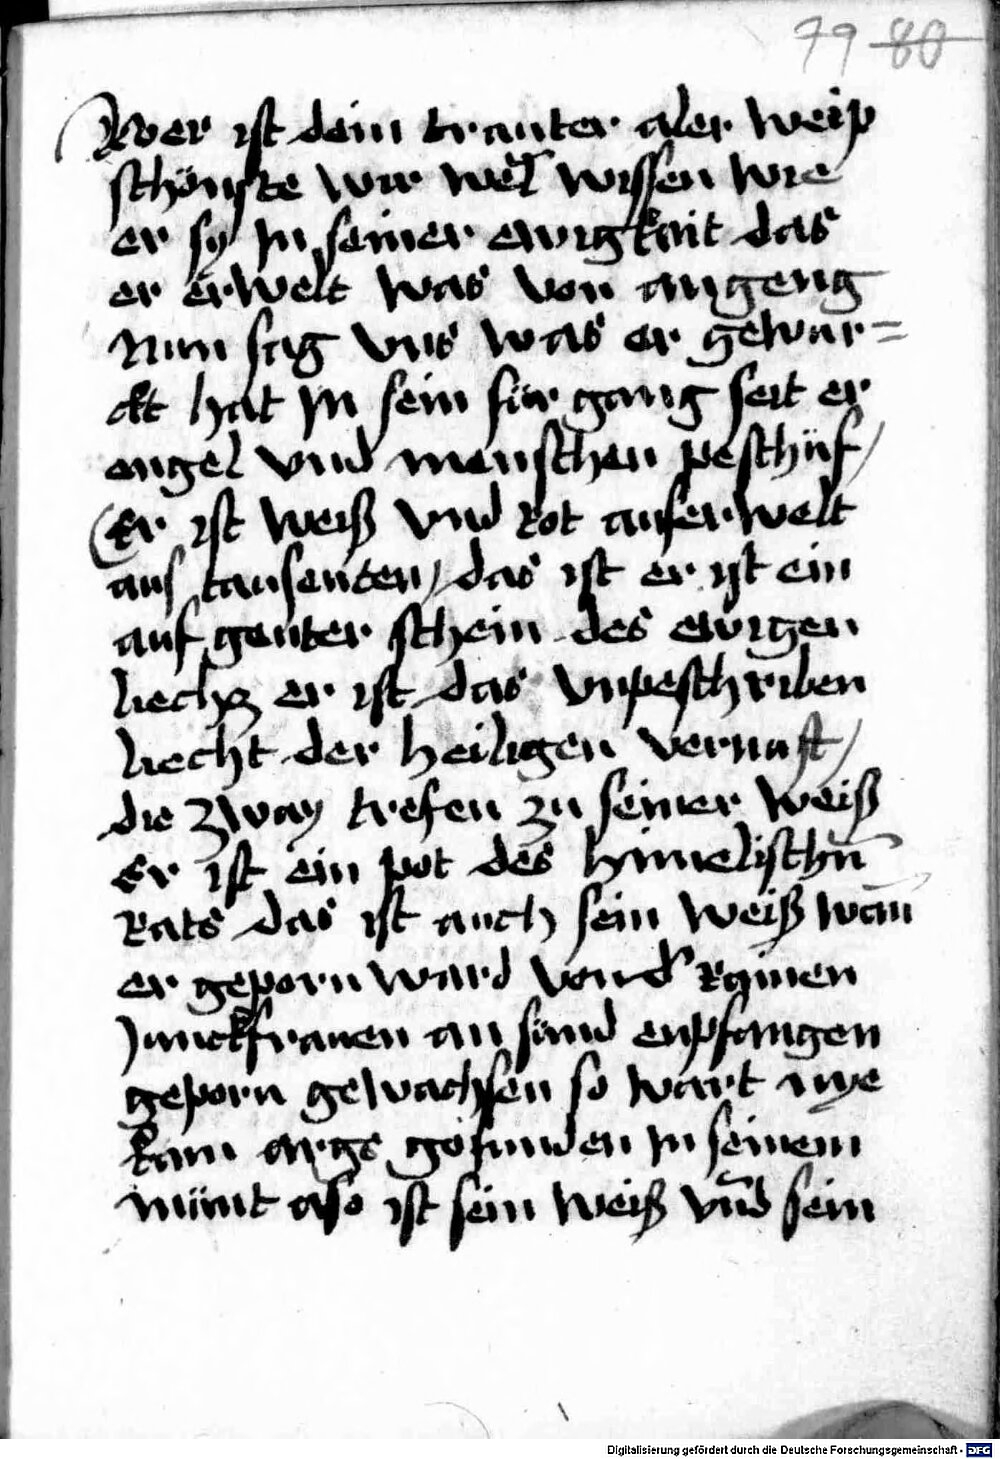 79 80
Wer ist dein trauter aler weip
schönste wir wel wissen wie
er sy jn seiner ewigkait das
er erwelt was von angeng
Nun sag vns was er gewür=
ckt hat jn sein für gang seit er
engel vnd menschen peschüf /
Er ist weiß vnd rot auserwelt
aus tausenten / das ist er ist ein
auf genter schein des ewigen
liechtz er ist das vnpeschriben
liecht der heiligen vernuft /
die zway trefen zu seiner weiß
Er ist ein pot des himelischn̄
Rats das ist auch sein weiß wan̄
er geporn ward von d' Rainen
Junckfrauen an sünd enpfangen
geporn gewachsen so wart nye
kain args gefunden jn seinem
münt also ist sein weiß vn̄d sein
Digitalisierung gefördert durch die Deutsche Forschungsgemeinschaft - DFG